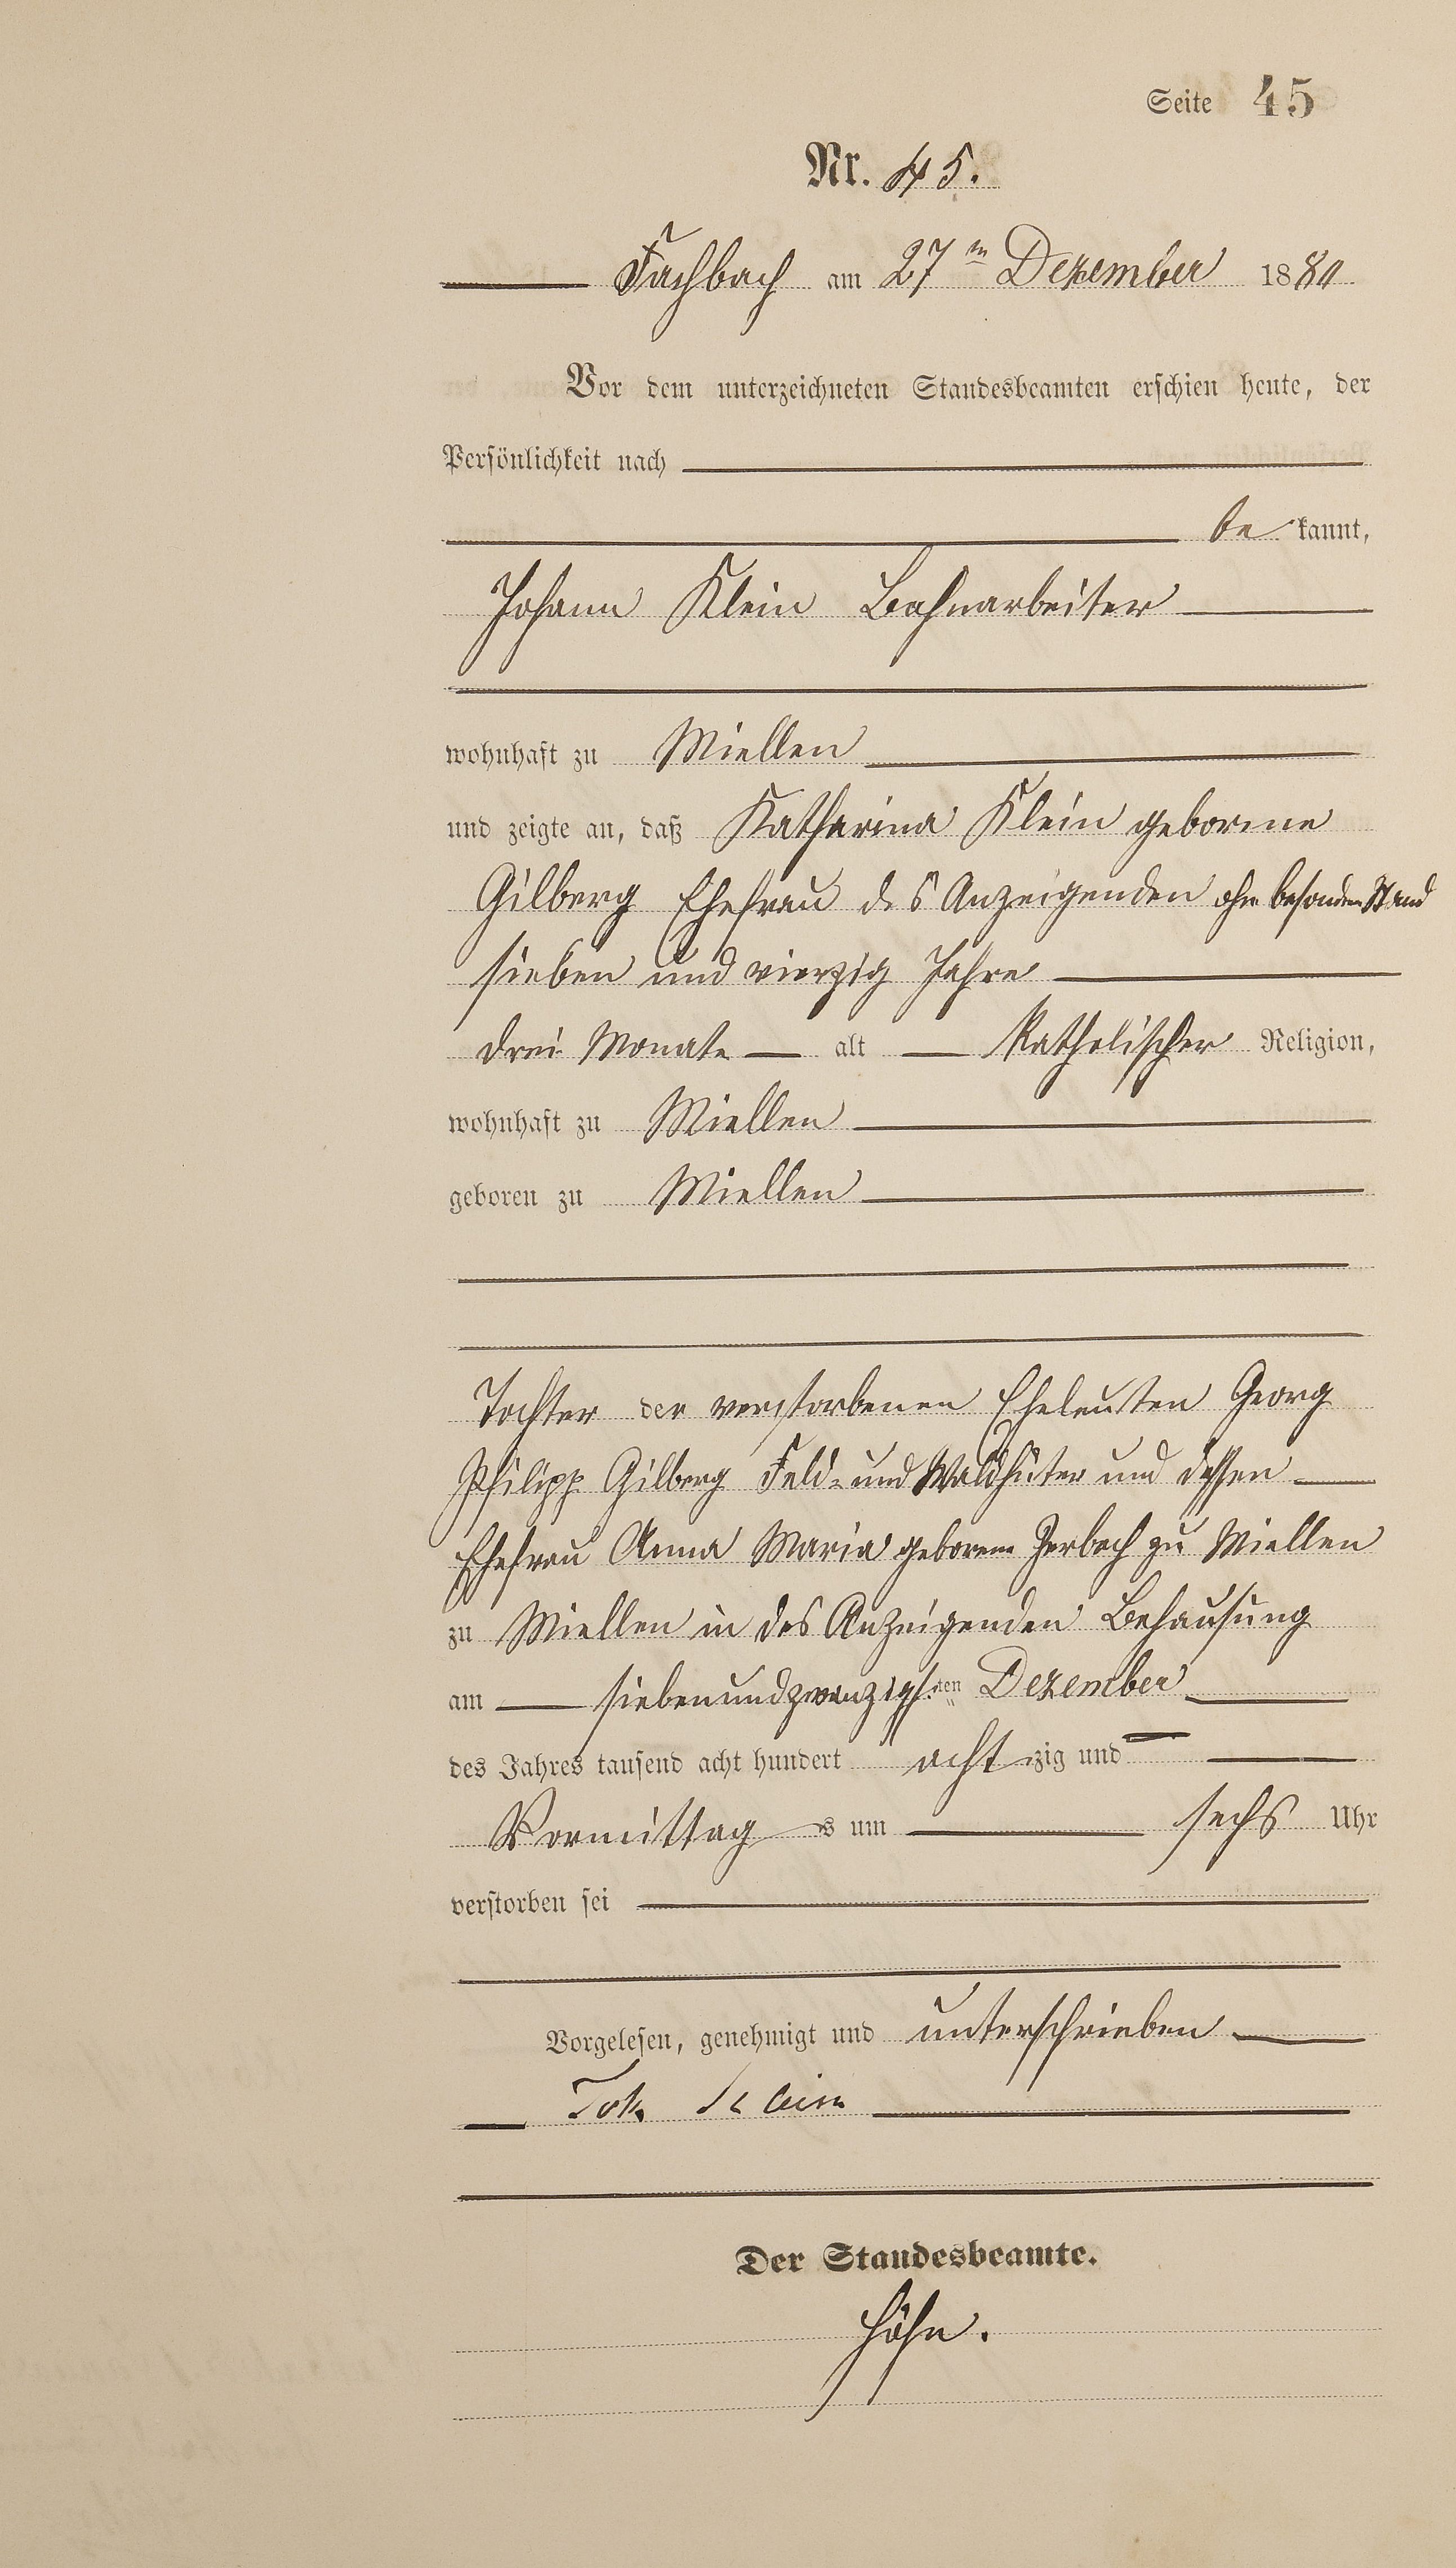 Seite 45
Nr. 45.
Fachbach am 27ten Dezember 1880
Vor dem unterzeichneten Standesbeamten erschien heute, der
Persönlichkeit nach
be kannt,
Johann Klein Bahnarbeiter
wohnhaft zu Miellen
und zeigte an, daß Katharina Klein geborene
Gilberg Ehefrau des Anzeigenden ohne besonderen Stand
sieben und vierzig Jahre
drei Monate alt katholischer Religion,
wohnhaft zu Miellen
geboren zu Miellen
Tochter der verstorbenen Eheleuten Georg
Philipp Gilberg Feld- und Waldhüter und dessen
Ehefrau Anna Maria geborene Zerbach zu Miellen
zu Miellen in des Anzeigenden Behausung
am siebenundzwanzigsten Dezember
des Jahres tausend acht hundert achtzig und
Vormittags um sechs Uhr
verstorben sei
Vorgelesen, genehmigt und unterschrieben
Joh. Klein
Der Standesbeamte.
Höhn.